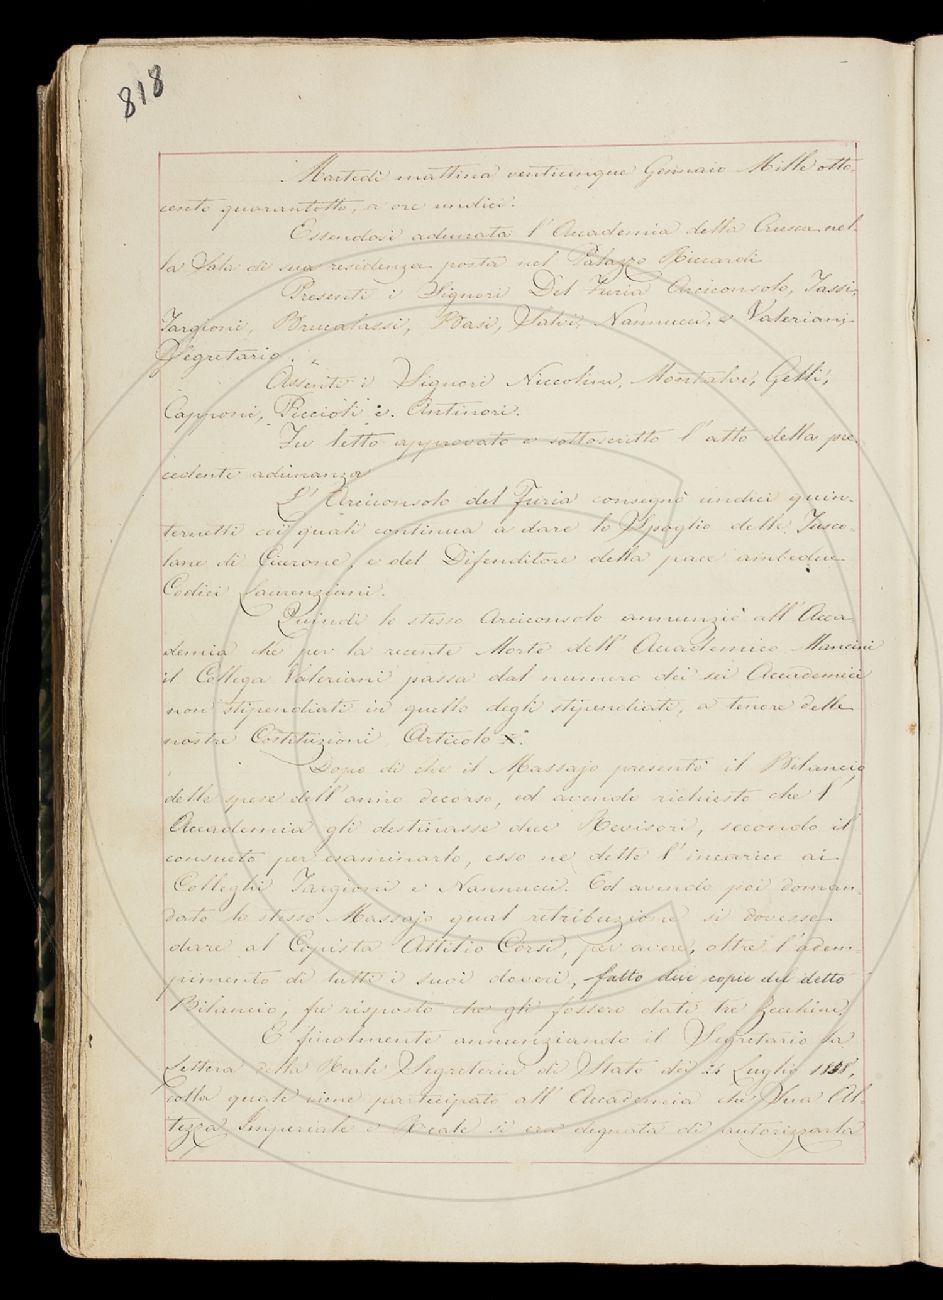 818
Martedì mattina venticinque Gennaio Mille otto
cento quarantotto, a ore undici.
Essendosi adunata l'Accademia della Crusca nel-
la Sala di sua residenza posta nel Palazzo Riccardi
Presenti i Signori Del Furia Arciconsolo, Tassi,
Targioni, Brucalassi, Basi, Salvi, Nannucci, e Valeriani
Segretario.
Assenti i Signori Niccolini, Montalvi, Gelli,
Capponi, Piccioli e Antinori.
Fu letto approvato e sottoscritto l'atto della pre-
cedente adunanza
L'Arciconsolo del Furia consegnò undici quin-
ternetti coi quali continua a dare lo Spoglio delle Tusco-
lane di Cicerone, e del Difenditore della pace ambedue
Codici Laurenziani.
Quindi lo stesso Arciconsolo annunziò all'Acca-
demia che per la recente Morte dell'Accademico Mancini
il Collega Valeriani passa dal numero dei sei Accademici
non stipendiati in quello degli stipendiati, a tenore delle
nostre Costituzioni Articolo X.
Dopo di che il Massajo presentò il Bilancio
delle spese dell'anno decorso, ed avendo richiesto che l'
Accademia gli destinasse due Revisori, secondo il
consueto per esaminarlo, esso ne dette l'incarico ai
Colleghi Targioni e Nannucci. Ed avendo poi doman-
dato lo stesso Massajo qual retribuzione si dovesse
dare al Copista Attilio Corsi, per avere, oltre l'adem-
pimento di tutti i suoi doveri, fatto due copie del detto
Bilancio, fu risposto che gli fossero dati tre Zecchini.
E finalmente annunziando il Segretario la
Lettera della Reale Segreteria di Stato dei 24 Luglio
colla quale viene partecipato all'Accademia che Sua Al-
tezza Imperiale e Reale si era degnata di autorizzarla